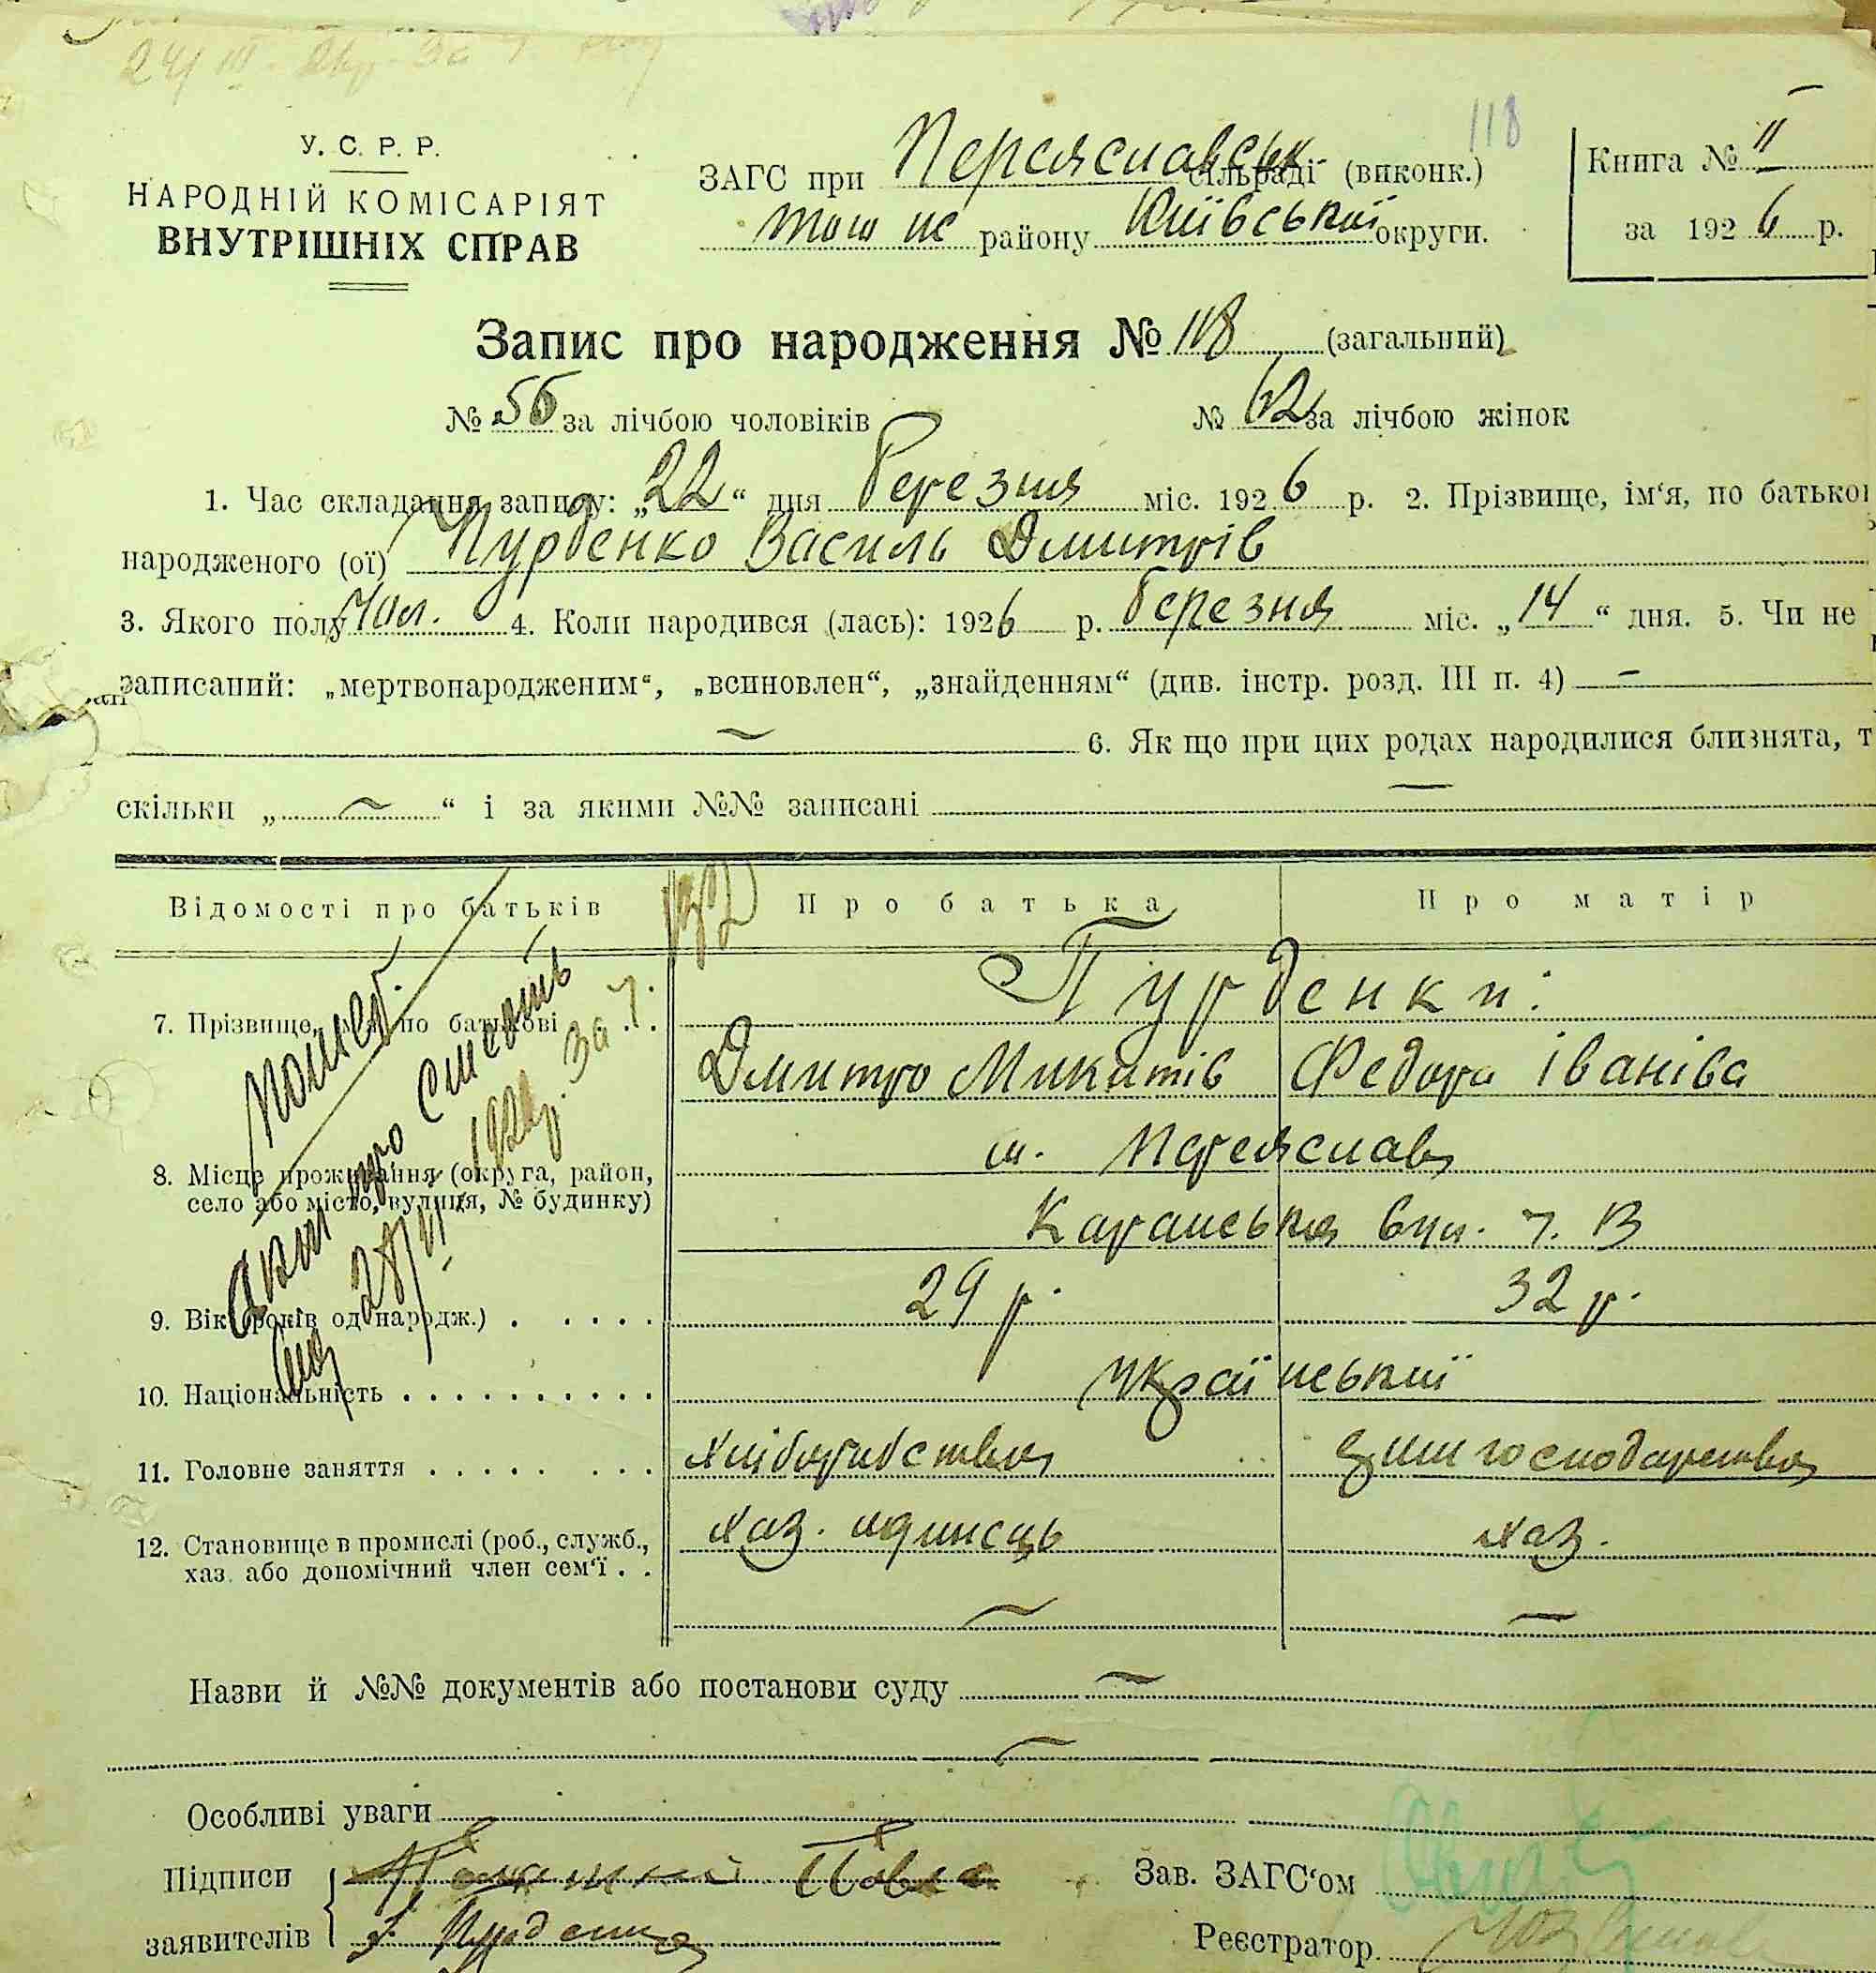 118
У. С. Р. Р.
НАРОДНІЙ КОМІСАРІЯТ
ВНУТРІШНІХ СПРАВ
ЗАГС при Переяславськ сільраді (виконк.)
того ж району Київської округи.
Книга № II
за 1926 р.
Запис про народження № 118 (загальний)
№ 56 за лічбою чоловіків № 62 за лічбою жінок
1. Час складання запису: „22“ дня березня міс. 1926 р. 2. Прізвище, ім‘я, по батькові
народженого (ої) Пурденко Василь Дмитрів
3. Якого полу чол. 4. Коли народився (лась): 1926 р. березня міс. „14“ дня. 5. Чи не
записаний: „мертвонародженим“, „всиновлен“, „знайденням“ (див. інстр. розд. III п. 4) —
— 6. Як що при цих родах народилися близнята, т
скільки „—“ і за якими №№ записані —
Відомості про батьків Про батька Про матір
7. Прізвище, ім‘я, по батькові Пурденки:
Дмитро Микитів Федора Іванівa
8. Місце проживання (округа, район, м. Переяслав
село або місто, вулиця, № будинку) Каранська вул. ч. 13
9. Вік (років од народж.) 29 р. 32 р.
10. Національність українській
11. Головне заняття хліборобство господарство
12. Становище в промислі (роб., служб., хаз. одинець хаз.
хаз. або допомічний член сем‘ї
— —
Назви й №№ документів або постанови суду —
—
Особливі уваги
Підписи
заявителів
Зав. ЗАГС‘ом
Реєстратор